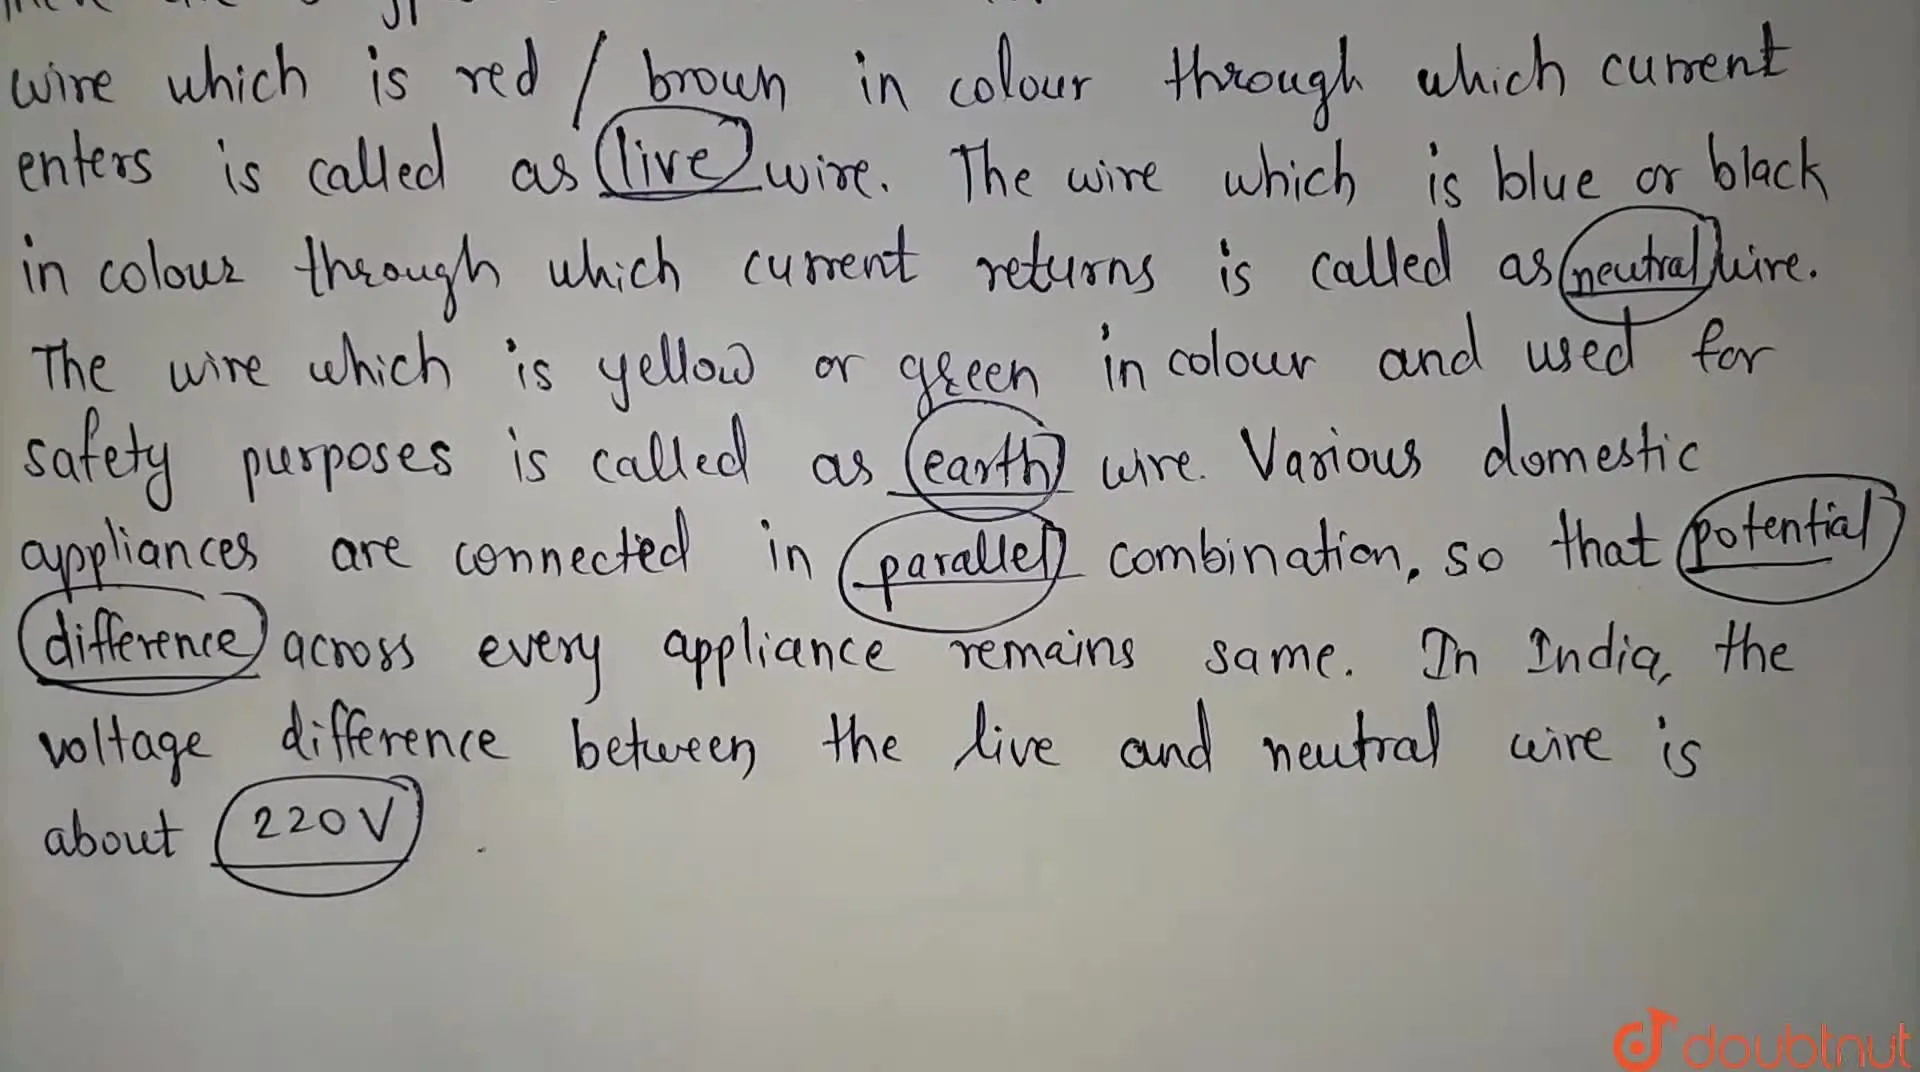 wire which is red / brown in colour through which current
enters is called as live wire. The wire which is blue or black
in colour through which current returns is called as neutral wire.
The wire which is yellow or green in colour and used for
safety purposes is called as earth wire. Various domestic
appliances are connected in parallel combination, so that potential
difference across every appliance remains same. In India, the
voltage difference between the live and neutral wire is
about 220V
doubtnut